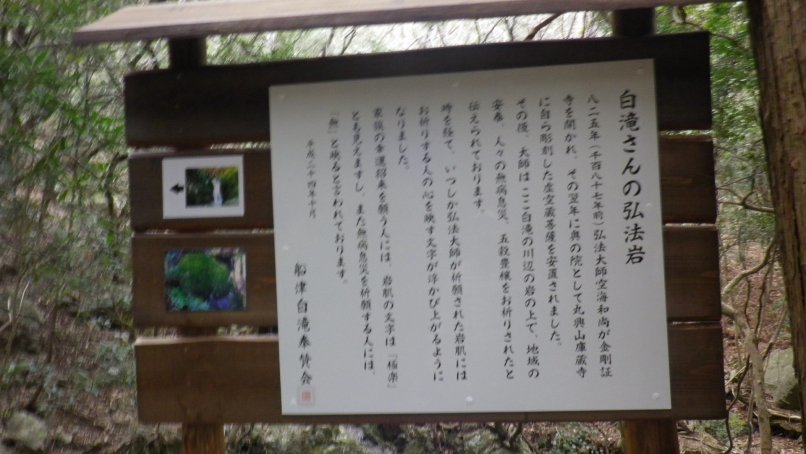 白滝さんの弘法岩
八二五年(千百八十七年前)弘法大師空海和尚が金剛証
寺を開かれ、その翌年に奥の院として丸興山庫蔵寺
に自ら彫刻した虚空蔵菩薩を安置されました。
その後、大師は ここ白滝の川辺の岩の上で、地域の
安泰、人々の無病息災、五穀豊穣をお祈りされたと
伝えられております。
時を経て、いつしか弘法大師が祈願された岩肌には
お祈りする人の心を映す文字が浮かび上がるように
なりました。
家族の幸運招来を願う人には、岩肌の文字は『極楽』
とも見えますし、また無病息災を祈願する人には、
『無』と映ると言われております。
平成二十四年十月
船津白滝奉賛会